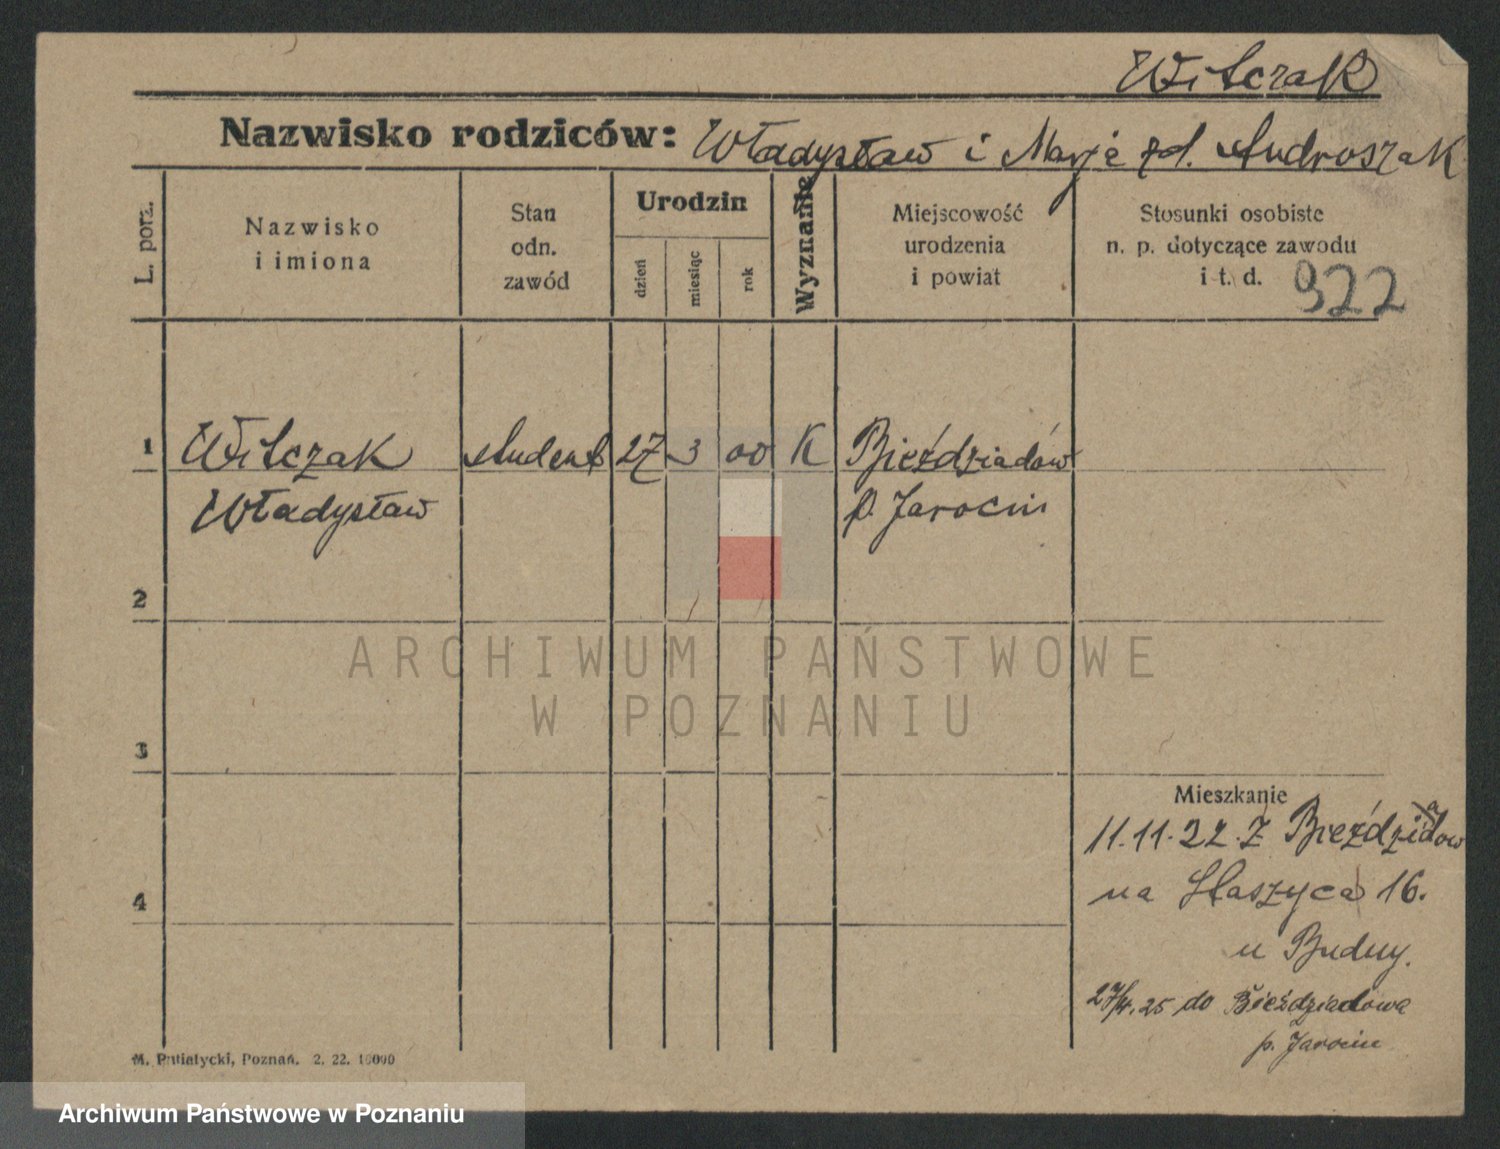 Witczak
Nazwisko rodziców: Władysław i Marje zd. Androszak
L. porz.
Nazwisko
i imiona
Stan
odn.
zawód
Urodzin
dzień
miesiąc
rok
Wyznanie
Miejscowość
urodzenia
i powiat
Stosunki osobiste
n. p. dotyczące zawodu
i t. d. 922
1 Witczak student 27 3 00 K Bieździadów
Władysław p. Jarocin
2
ARCHIWUM PAŃSTWOWE
W POZNANIU
3
Mieszkanie
11.11.22. Z Bieździadow
na Staszyca 16.
4
u Budny.
27/4.25 do Bieździadowa
p. Jarocin
M. Putiatycki, Poznań. 2. 22. 10000
Archiwum Państwowe w Poznaniu